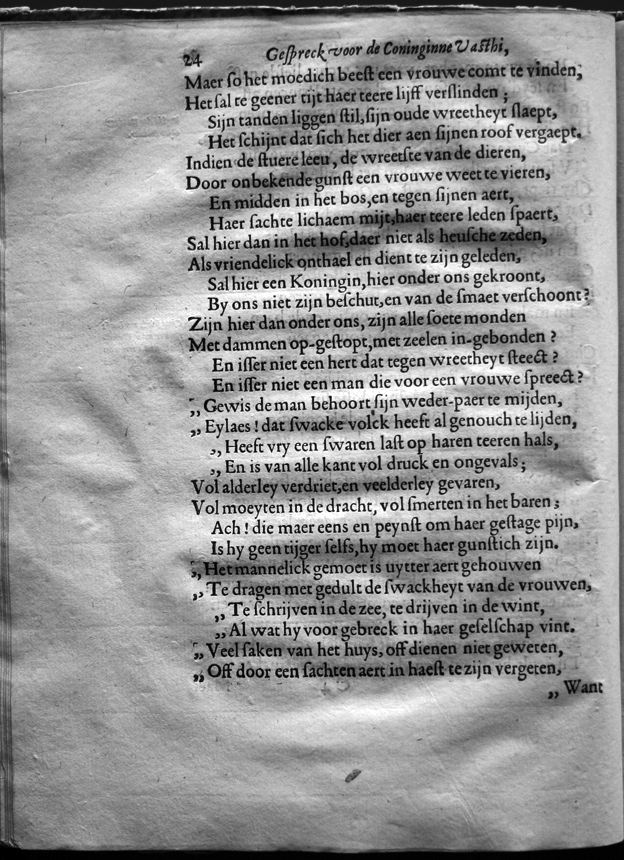 24 Geſpreck voor de Coninginne Vaſthi,
Maer ſo het moedich beeſt een vrouwe comt te vinden,
Het ſal te geener tijt haer teere lijff verſlinden ;
Sijn tanden liggen ſtil, ſijn oude wreetheyt ſlaept,
Het ſchijnt dat ſich het dier aen ſijnen roof vergaept.
Indien de ſtuere leeu, de wreetſte van de dieren,
Door onbekende gunſt een vrouwe weet te vieren,
En midden in het bos, en tegen ſijnen aert,
Haer ſachte lichaem mijt, haer teere leden ſpaert,
Sal hier dan in het hof, daer niet als heuſche zeden,
Als vriendelick onthael en dient te zijn geleden,
Sal hier een Koningin, hier onder ons gekroont,
By ons niet zijn beſchut, en van de ſmaet verſchoont ?
Zijn hier dan onder ons, zijn alle ſoete monden
Met dammen op-geſtopt, met zeelen in-gebonden ?
En iſſer niet een hert dat tegen wreetheyt ſteeckt ?
En iſſer niet een man die voor een vrouwe ſpreeckt ?
„ Gewis de man behoort ſijn weder-paer te mijden,
„ Eylaes ! dat ſwacke volck heeft al genouch te lijden,
„ Heeft vry een ſwaren laſt op haren teeren hals,
„ En is van alle kant vol druck en ongevals ;
Vol alderley verdriet, en veelderley gevaren,
Vol moeyten in de dracht, vol ſmerten in het baren ;
Ach ! die maer eens en peynſt om haer geſtage pijn,
Is hy geen tijger ſelfs, hy moet haer gunſtich zijn.
„ Het mannelick gemoet is uytter aert gehouwen
„ Te dragen met gedult de ſwackheyt van de vrouwen,
„ Te ſchrijven in de zee, te drijven in de wint,
„ Al wat hy voor gebreck in haer geſelſchap vint.
„ Veel ſaken van het huys, off dienen niet geweten,
„ Off door een ſachten aert in haeſt te zijn vergeten,
„ Want